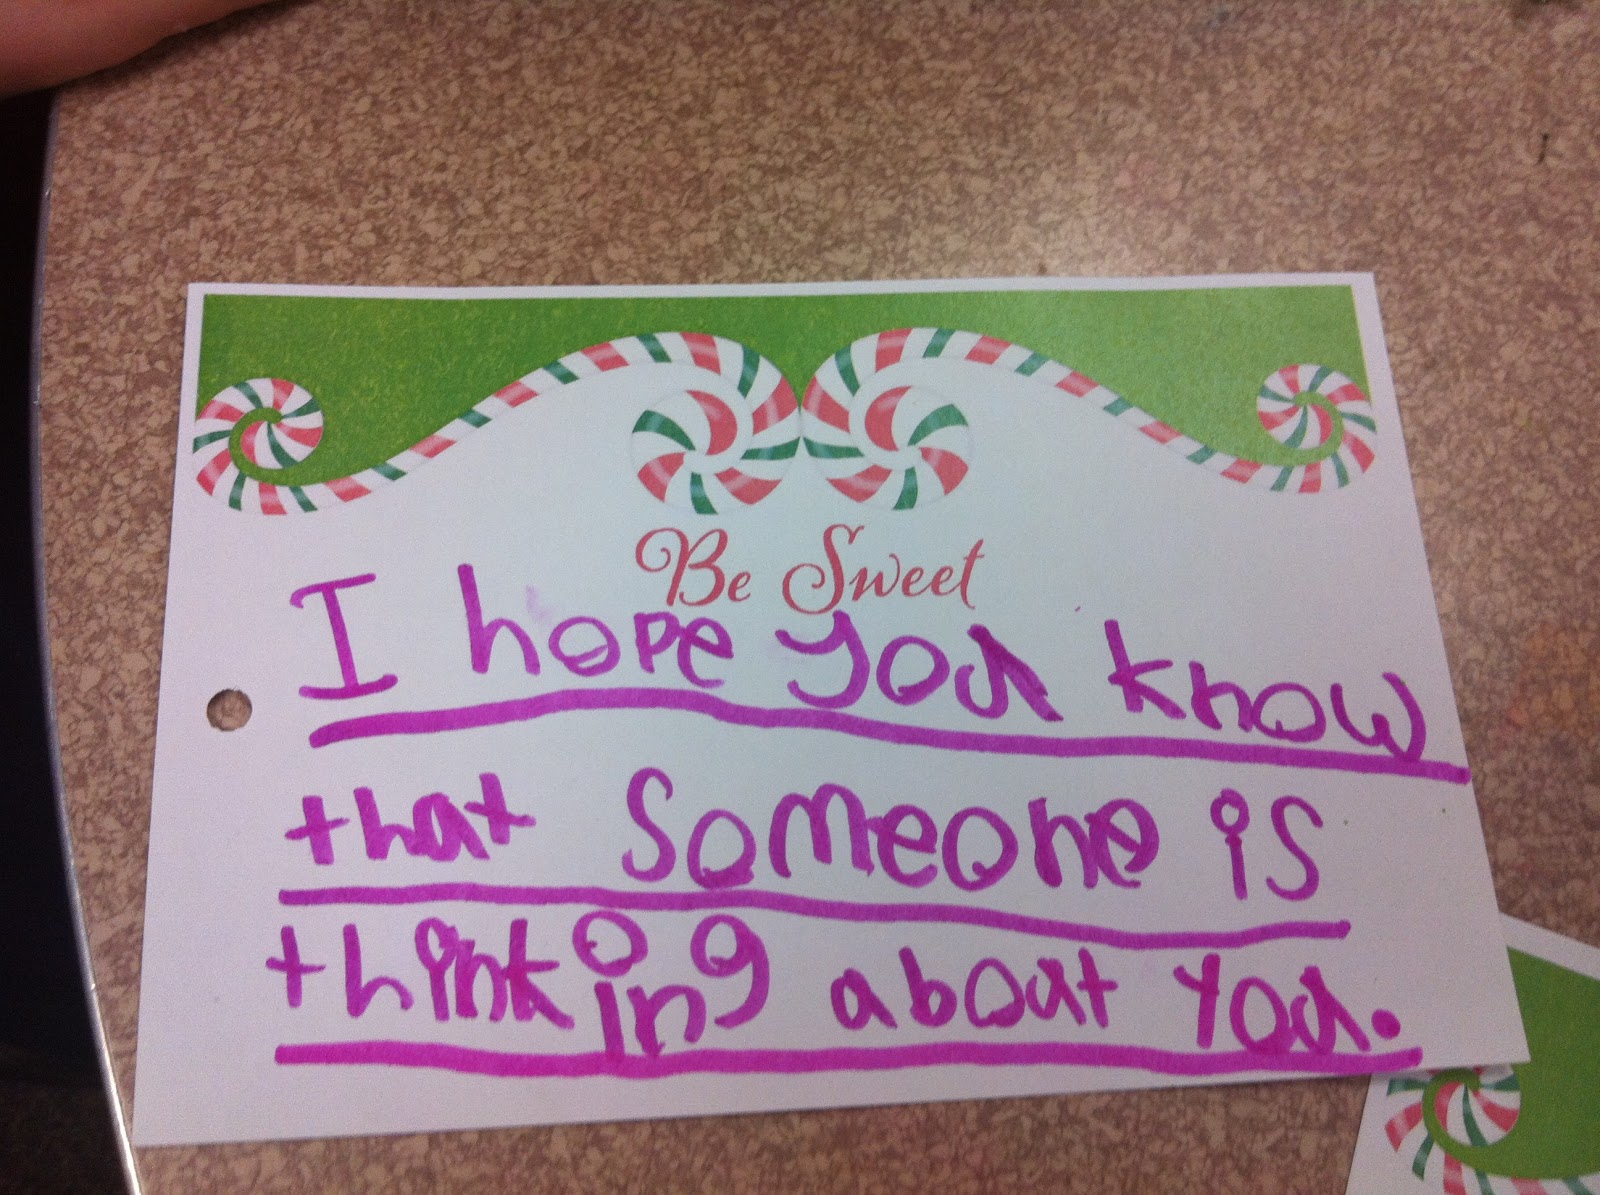 Be Sweet
I hope you know
that someone is
thinking about you.